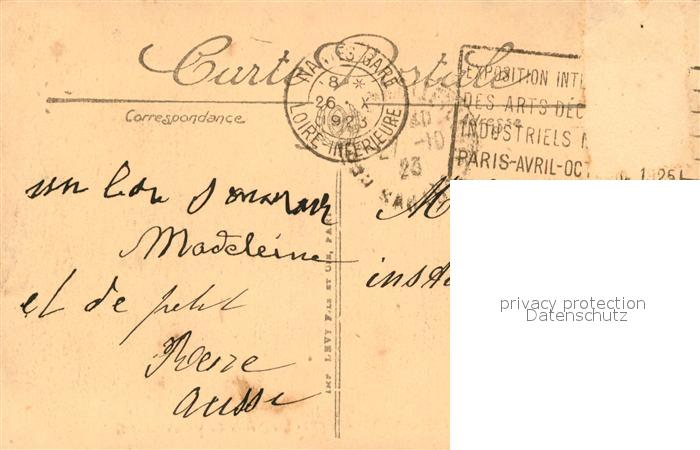 Carte Postale
Correspondance
Adresse
NANTES GARE
8 *
26 · X
1923
LOIRE-INFERIEURE
-10
23
EXPOSITION INT
DES ARTS DÉC
INDUSTRIELS
PARIS-AVRIL-OCT
1925
un bon
Madeleine
et de petit
aussi
M
insti
IMP LEVY FILS ET CIE, PA
privacy protection
Datenschutz